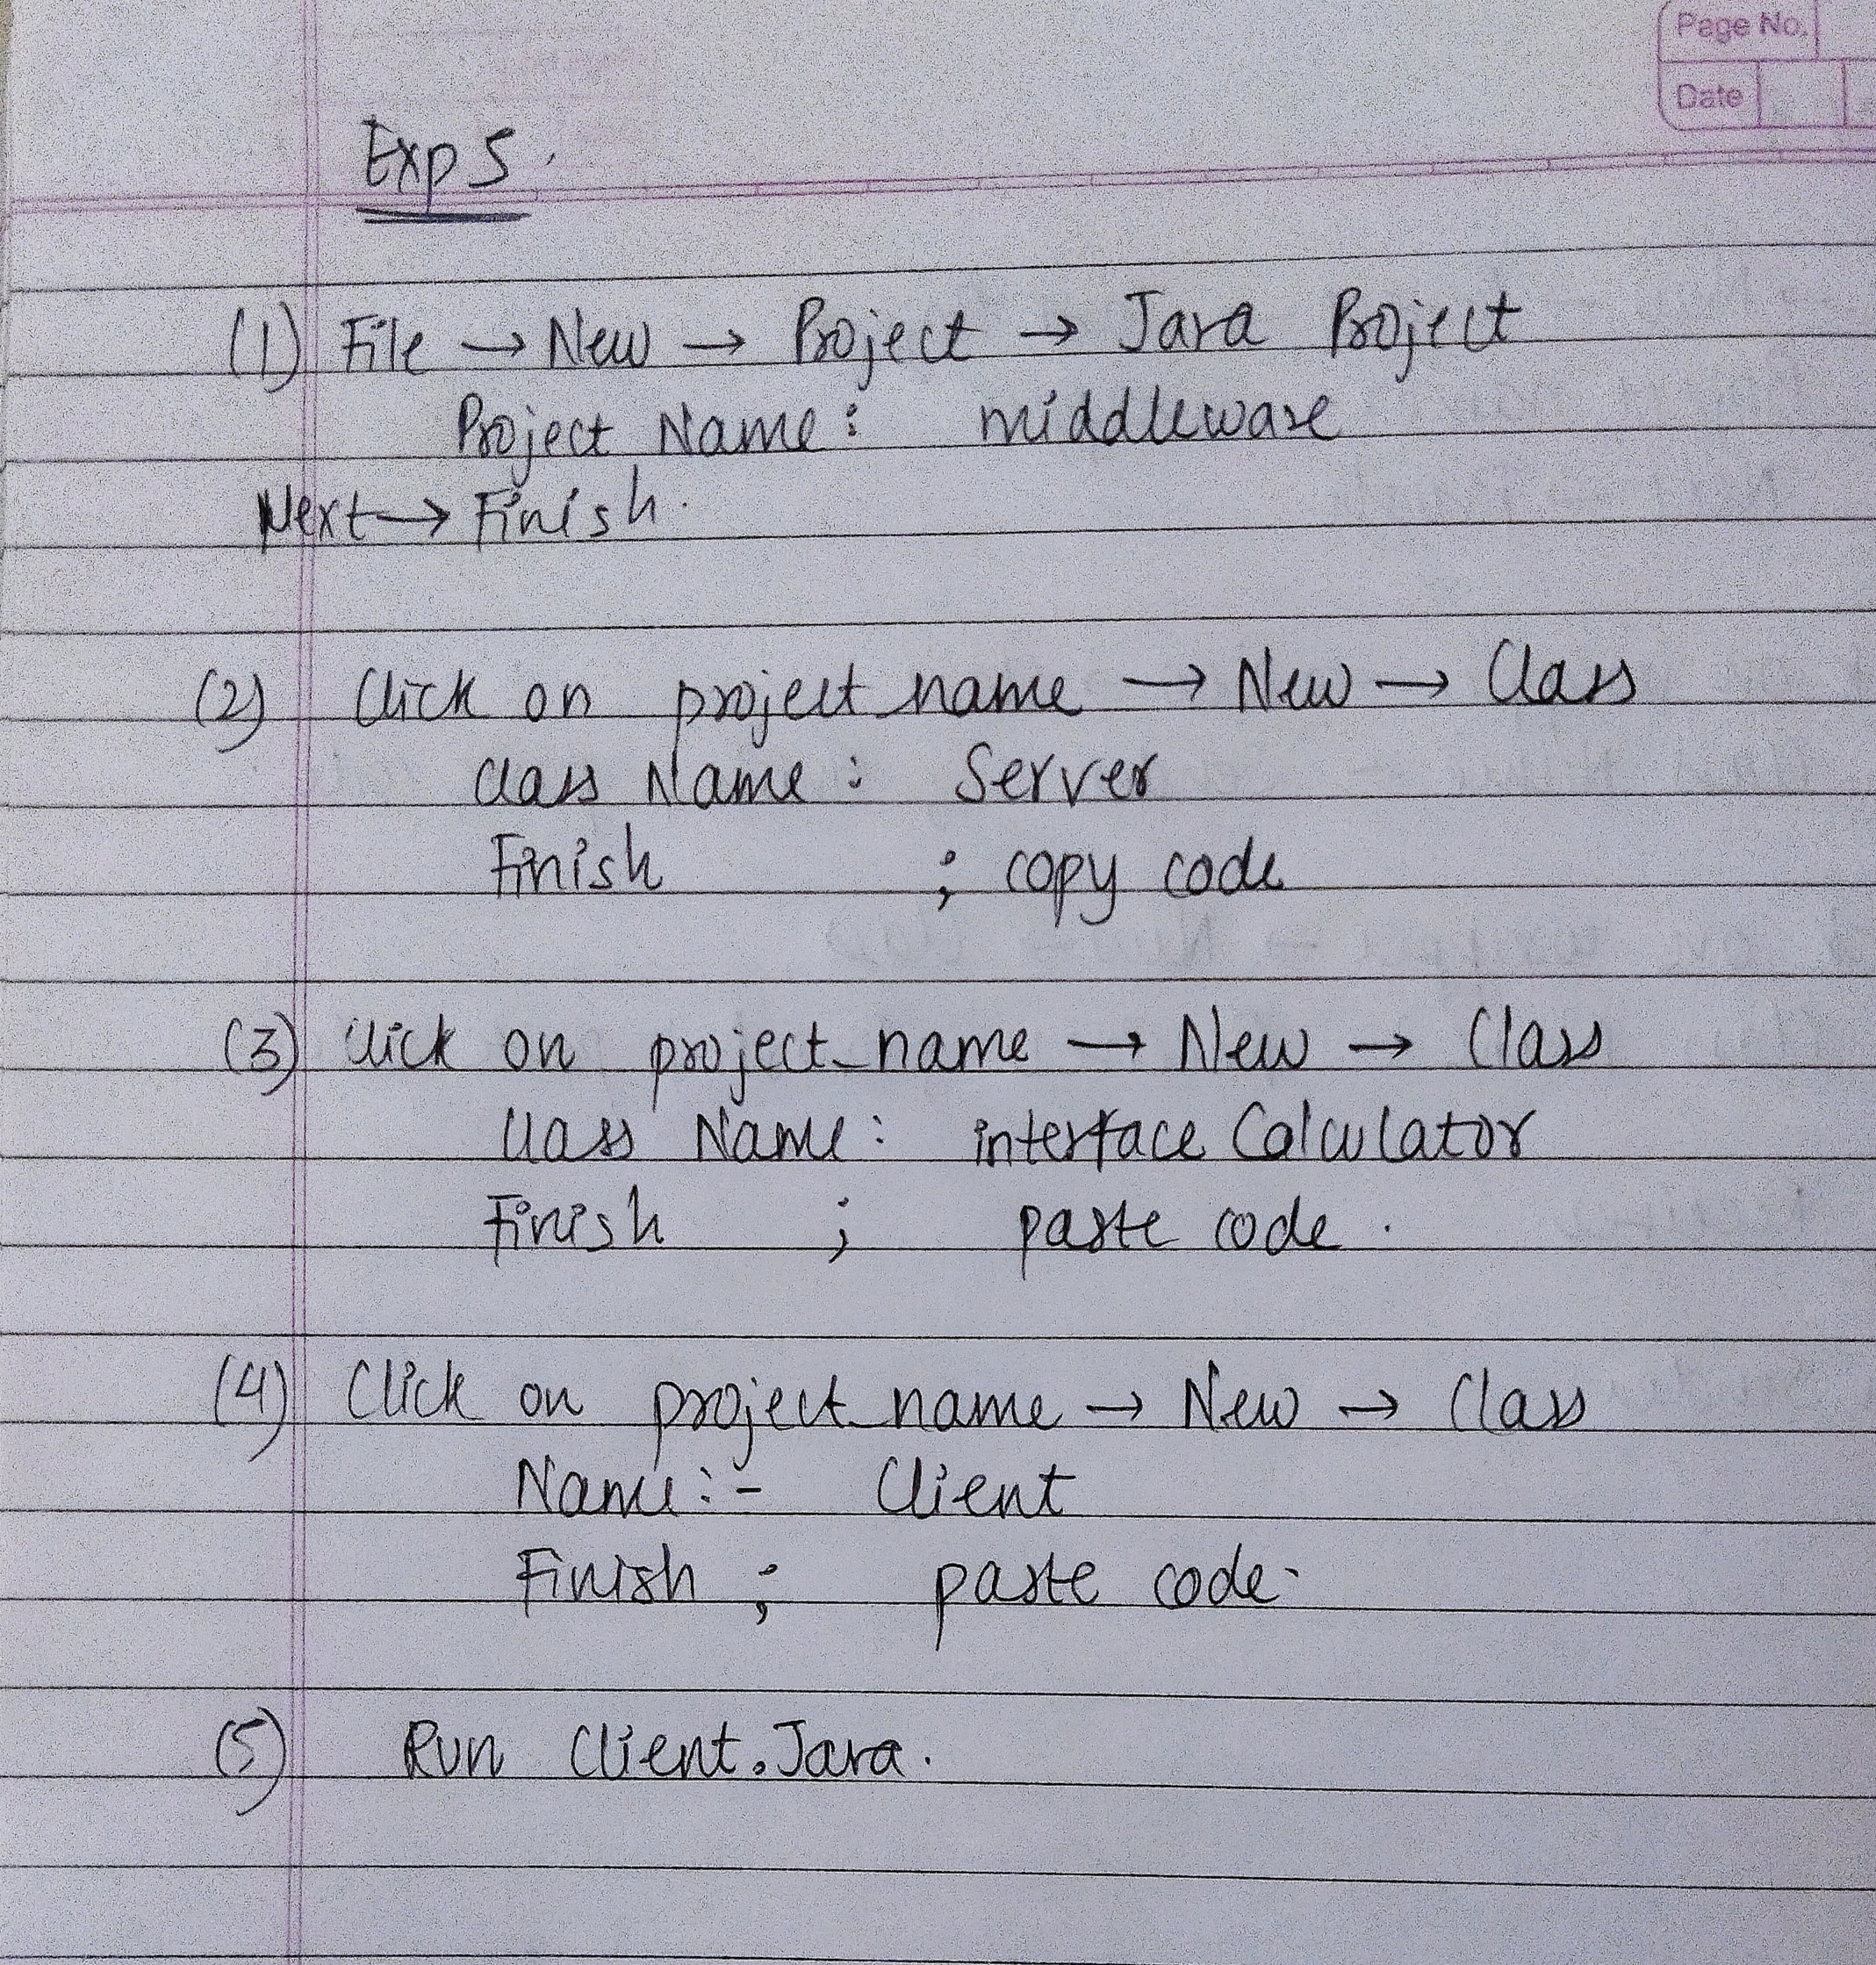 Page No.
Date
Exp 5.
(1) File → New → Project → Java Project
Project Name : middleware
Next → Finish.
(2) Click on project_name → New → Class
Class Name : Server
Finish ; copy code
(3) Click on project_name → New → Class
Class Name : interface Calculator
Finish ; paste code.
(4) Click on project_name → New → Class
Name :- Client
Finish ; paste code.
(5) Run Client.Java.